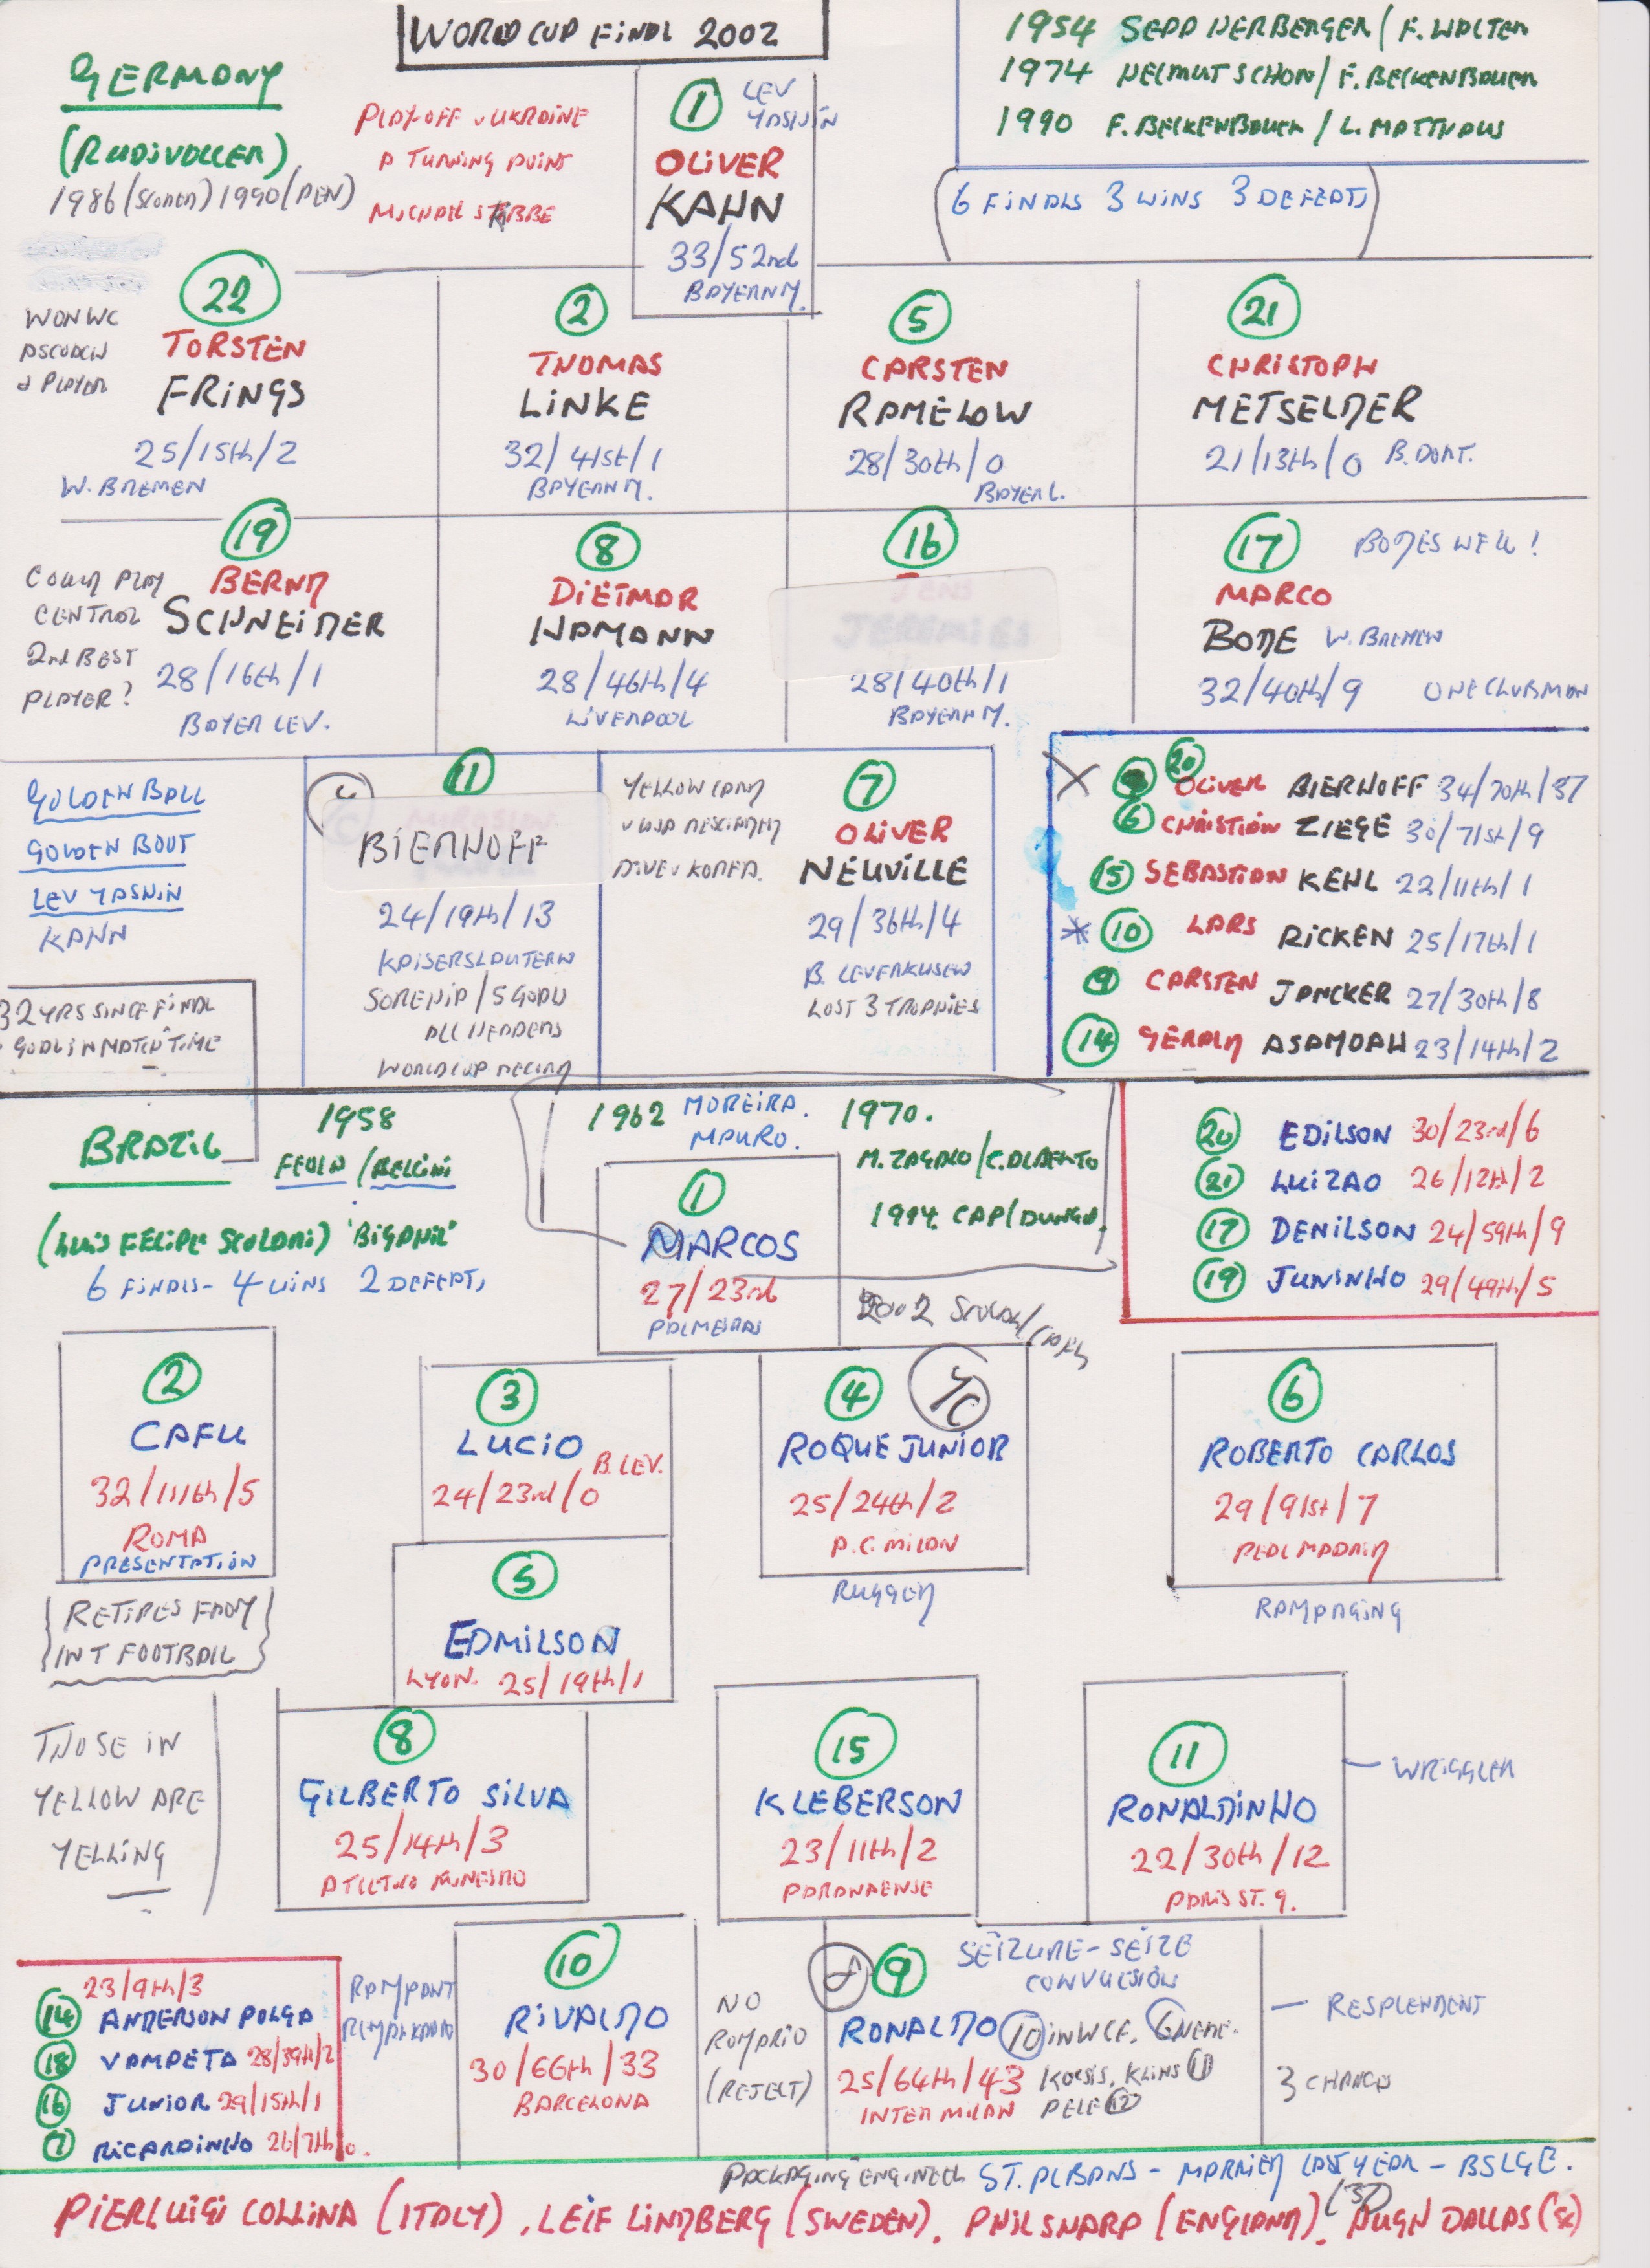 WORLD CUP FINAL 2002
GERMANY
(RUDI VOLLER)
1986 (SCORED) 1990 (PEN)
PLAY-OFF v UKRAINE
A TURNING POINT
1
LEV
YASHIN
OLIVER
KAHN
33/52nd
BAYERN M.
1954 SEPP HERBERGER / F. WALTER
1974 HELMUT SCHON / F. BECKENBAUER
1990 F. BECKENBAUER / L. MATTHAUS
6 FINALS 3 WINS 3 DEFEATS
WON WC
AS COACH
& PLAYER
22
TORSTEN
FRINGS
25/15th/2
W. BREMEN
2
THOMAS
LINKE
32/41st/1
BAYERN M.
5
CARSTEN
RAMELOW
28/30th/0
BAYER L.
21
CHRISTOPH
METSELDER
21/13th/0 B. DORT.
COULD PLAY
CENTRAL
2nd BEST
PLAYER?
19
BERND
SCHNEIDER
28/16th/1
BAYER LEV.
8
DIETMAR
HAMANN
28/46th/4
LIVERPOOL
16
JENS
JEREMIES
28/40th/1
BAYERN M.
17
BODES WELL!
MARCO
BODE W. BREMEN
32/40th/9 ONE CLUB MAN
GOLDEN BALL
GOLDEN BOOT
LEV YASHIN
KAHN
32 YRS SINCE FINAL
GOAL IN MATCH TIME
11
BIERHOFF
24/19th/13
KAISERSLAUTERN
5 GOALS
ALL HEADERS
WORLD CUP RECORD
YELLOW CARD
v USA RESCINDED
DIVE v KOREA.
7
OLIVER
NEUVILLE
29/36th/4
B. LEVERKUSEN
LOST 3 TROPHIES
20 OLIVER BIERHOFF 34/70th/37
6 CHRISTIAN ZIEGE 30/71st/9
15 SEBASTIAN KEHL 22/11th/1
10 LARS RICKEN 25/17th/1
9 CARSTEN JANCKER 27/30th/8
14 GERALD ASAMOAH 23/14th/2
BRAZIL
1958
FEOLA / BELLINI
1962 MOREIRA.
MAURO.
1970.
M. ZAGALO / C. ALBERTO
1994 CAP / DUNGA
(LUIS FELIPE SCOLARI) 'BIG PHIL'
6 FINALS - 4 WINS 2 DEFEATS
1
MARCOS
27/23rd
PALMEIRAS
2002 SCOLARI / CAFU
20 EDILSON 30/23rd/6
21 LUIZAO 26/12th/2
17 DENILSON 24/59th/9
19 JUNINHO 29/49th/5
2
CAFU
32/111th/5
ROMA
PRESENTATION
RETIRES FROM
INT FOOTBALL
3
LUCIO
B. LEV.
24/23rd/0
4
YC
ROQUE JUNIOR
25/24th/2
A.C. MILAN
RUGGED
6
ROBERTO CARLOS
29/91st/7
REAL MADRID
RAMPAGING
5
EDMILSON
LYON. 25/19th/1
THOSE IN
YELLOW ARE
YELLING
8
GILBERTO SILVA
25/14th/3
ATLETICO MINEIRO
15
KLEBERSON
23/11th/2
PARANAENSE
11
RONALDINHO
22/30th/12
PARIS ST. G.
WRIGGLER
23/9th/3
14 ANDERSON POLGA
18 VAMPETA 28/39th/2
16 JUNIOR 29/15th/1
7 RICARDINHO 26/7th/0.
RAMPANT
10
RIVALDO
30/66th/33
BARCELONA
NO
ROMARIO
(REJECT)
8 9
SEIZURE - SEIZE
CONVULSION
RONALDO 10 IN WCF.
25/64th/43 KOCSIS, KLINS 11
INTER MILAN PELE 12
RESPLENDENT
3 CHANCES
PACKAGING ENGINEER ST. ALBANS - MARRIED LAST YEAR - BSLGE.
(37)
PIERLUIGI COLLINA (ITALY), LEIF LINDBERG (SWEDEN), PHIL SHARP (ENGLAND), HUGH DALLAS (Sc)